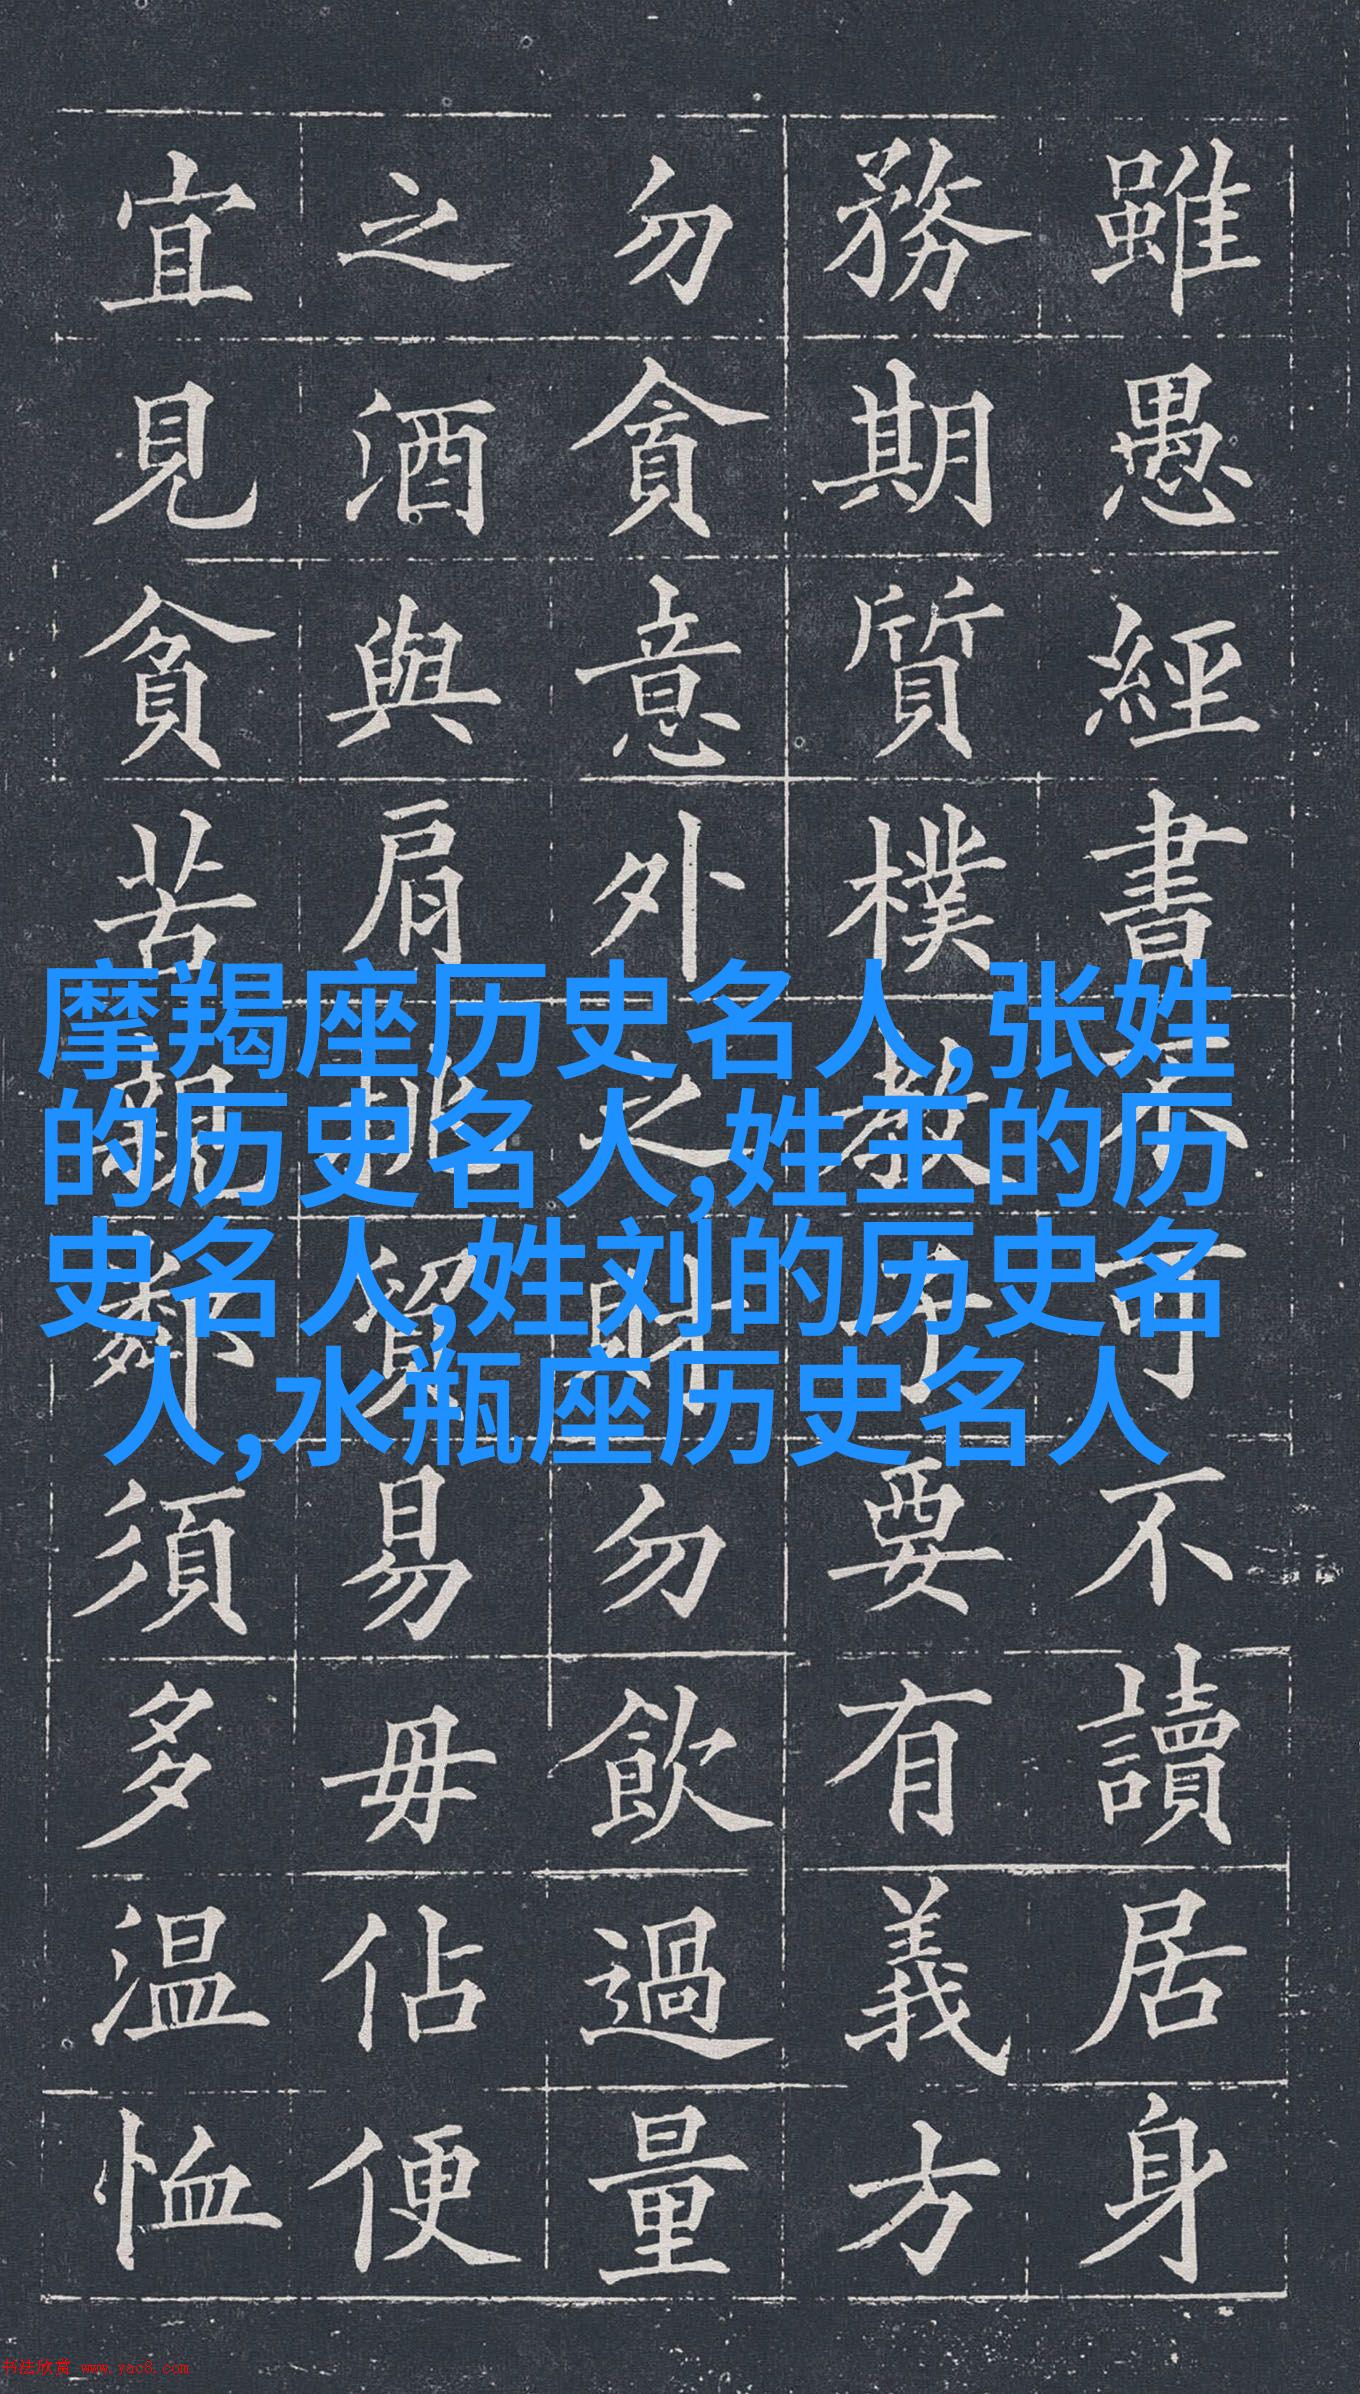 雖愚經書不可不讀居身
務期質樸教子要有義方
勿貪意外之財勿飲過量
之酒與肩挑貿易毋佔便
宜見貧苦親鄰須多温恤
摩羯座历史名人,张姓
的历史名人,姓王的历
史名人,姓刘的历史名
人,水瓶座历史名人
书法欣赏 www.yac8.com